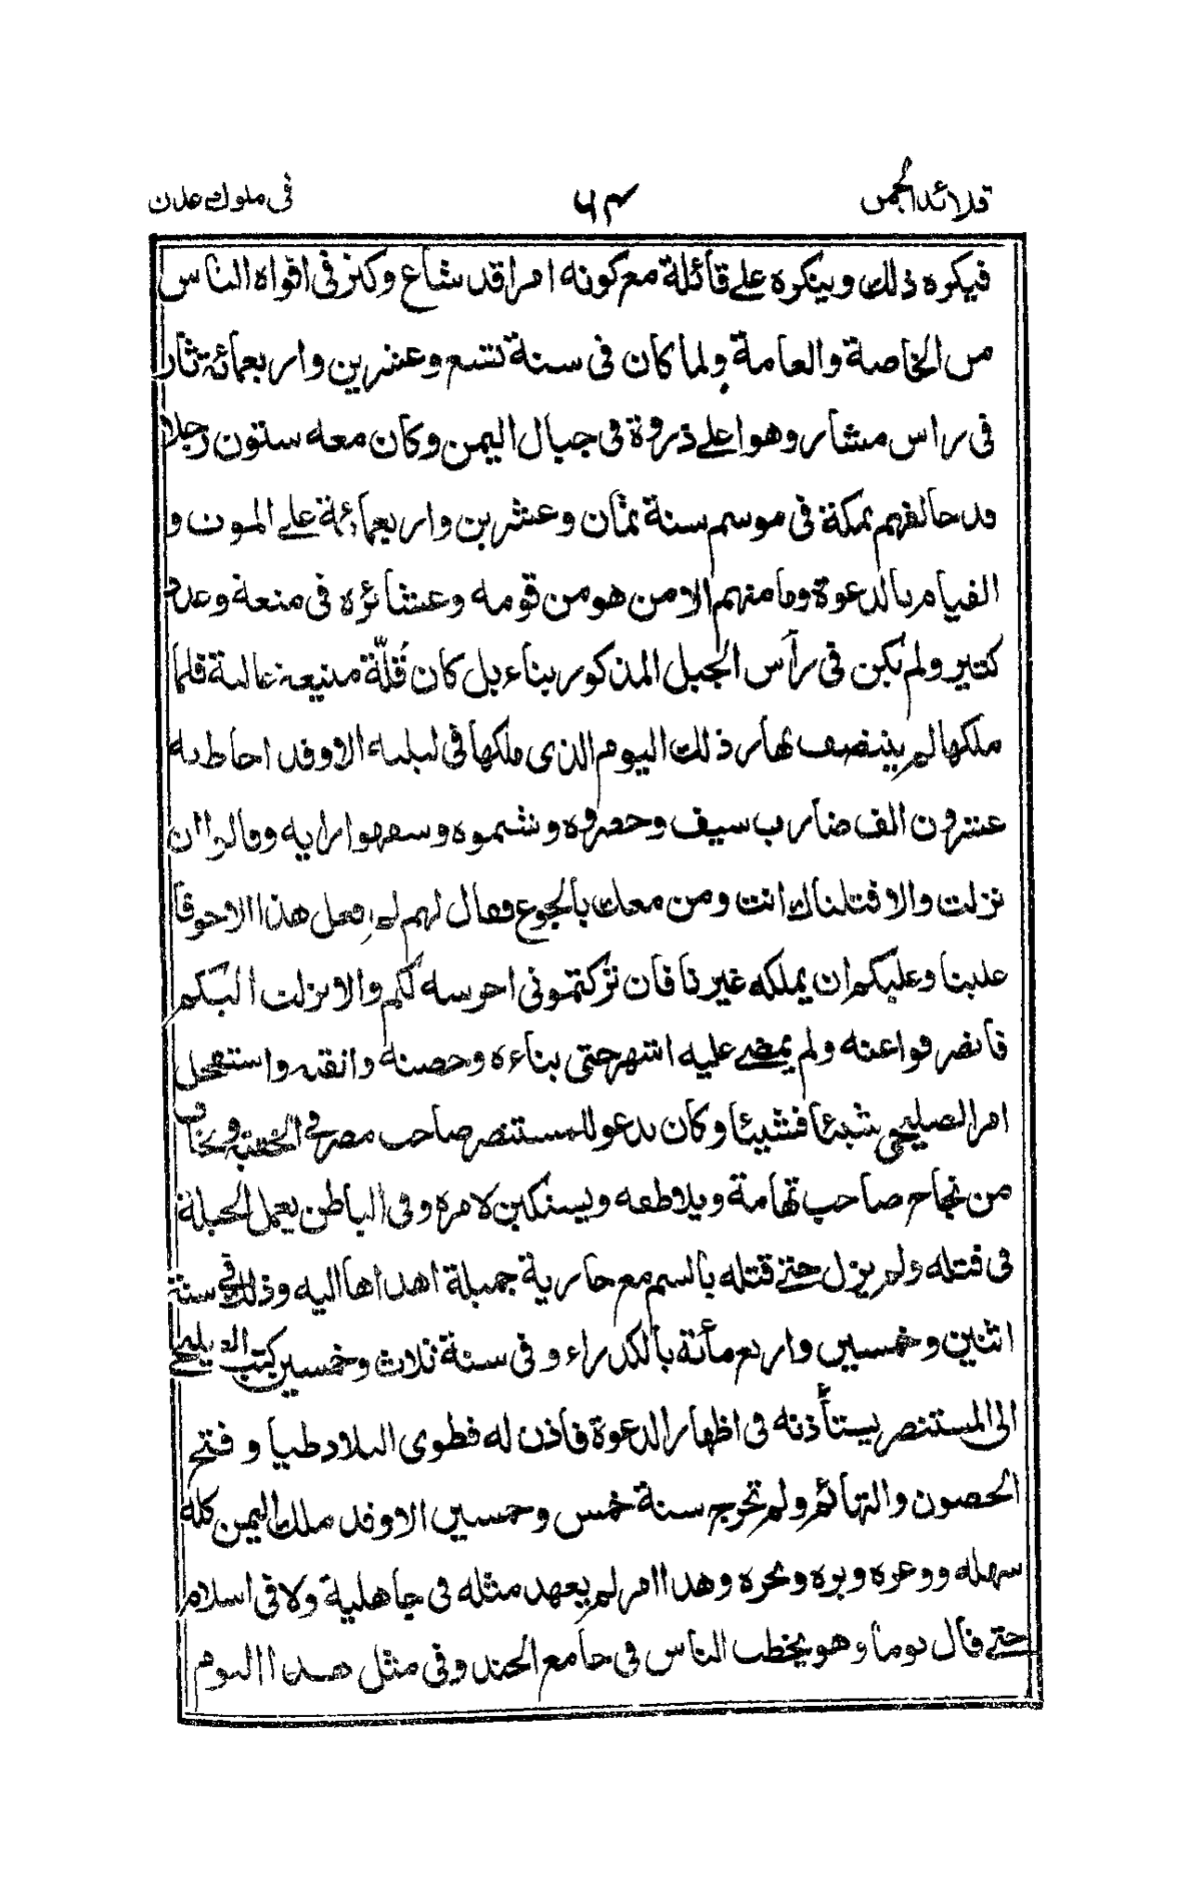 قلائد الجمن ٦٣ فى ملوك عدن
فيكره ذلك وينكره على قائلة مع كونه امرا قد شاع وكثر فى افواه الناس
من الخاصة والعامة ولما كان فى سنة تسع وعشرين واربعمائة ثار
فى راس مشار وهو اعلے ذروة فى جبال اليمن وكان معه ستون رجلا
قد حالفهم بمكة فى موسم سنة ثمان وعشرين واربعمائة علے الموت و
القيام بالدعوة وما منهم الا من هو من قومه وعشائره فى منعة وعدد
كثير ولم يكن فى رأس الجبل المذكور بناء بل كان قُلّة منيعة عالية فلما
ملكها لم ينتصف نهار ذلك اليوم الذى ملكها فى ليلته الا وقد احاط به
عشرون الف ضارب سيف وحصروه وشتموه وسفهوا رايه وقالوا ان
نزلت والا قتلناك انت ومن معك بالجوع فقال لهم لم افعل هذا الا خوفا
علينا وعليكم ان يملكه غيرنا فان تركتمونى احرسه لكم والا نزلت اليكم
فانصرفوا عنه ولم يمضے عليه اشهر حتى بناءه وحصنه واتقنه واستفحل
امر الصليحى شيئا فشيئا وكان يدعو للمستنصر صاحب مصر فى الخفية ويخاف
من نجاح صاحب تهامة ويلاطفه ويستكين لامره وفى الباطن يعمل الحيلة
فى قتله ولم يزل حتے قتله بالسم مع جارية جميلة اهداها اليه وذلك فى سنة
اثنين وخمسين واربع مأئة بالكدراء وفى سنة ثلاث وخمسين كتب الصليحے
الى المستنصر يستأذنه فى اظهار الدعوة فاذن له فطوى البلاد طيا و فتح
الحصون والتهائم ولم تخرج سنة خمس وخمسين الا وقد ملك اليمن كله
سهله ووعره وبره وبحره وهذا امر لم يعهد مثله فى جاهلية ولا فى اسلام
حتے قال يوما وهو يخطب الناس فى جامع الجند وفى مثل هذا اليوم